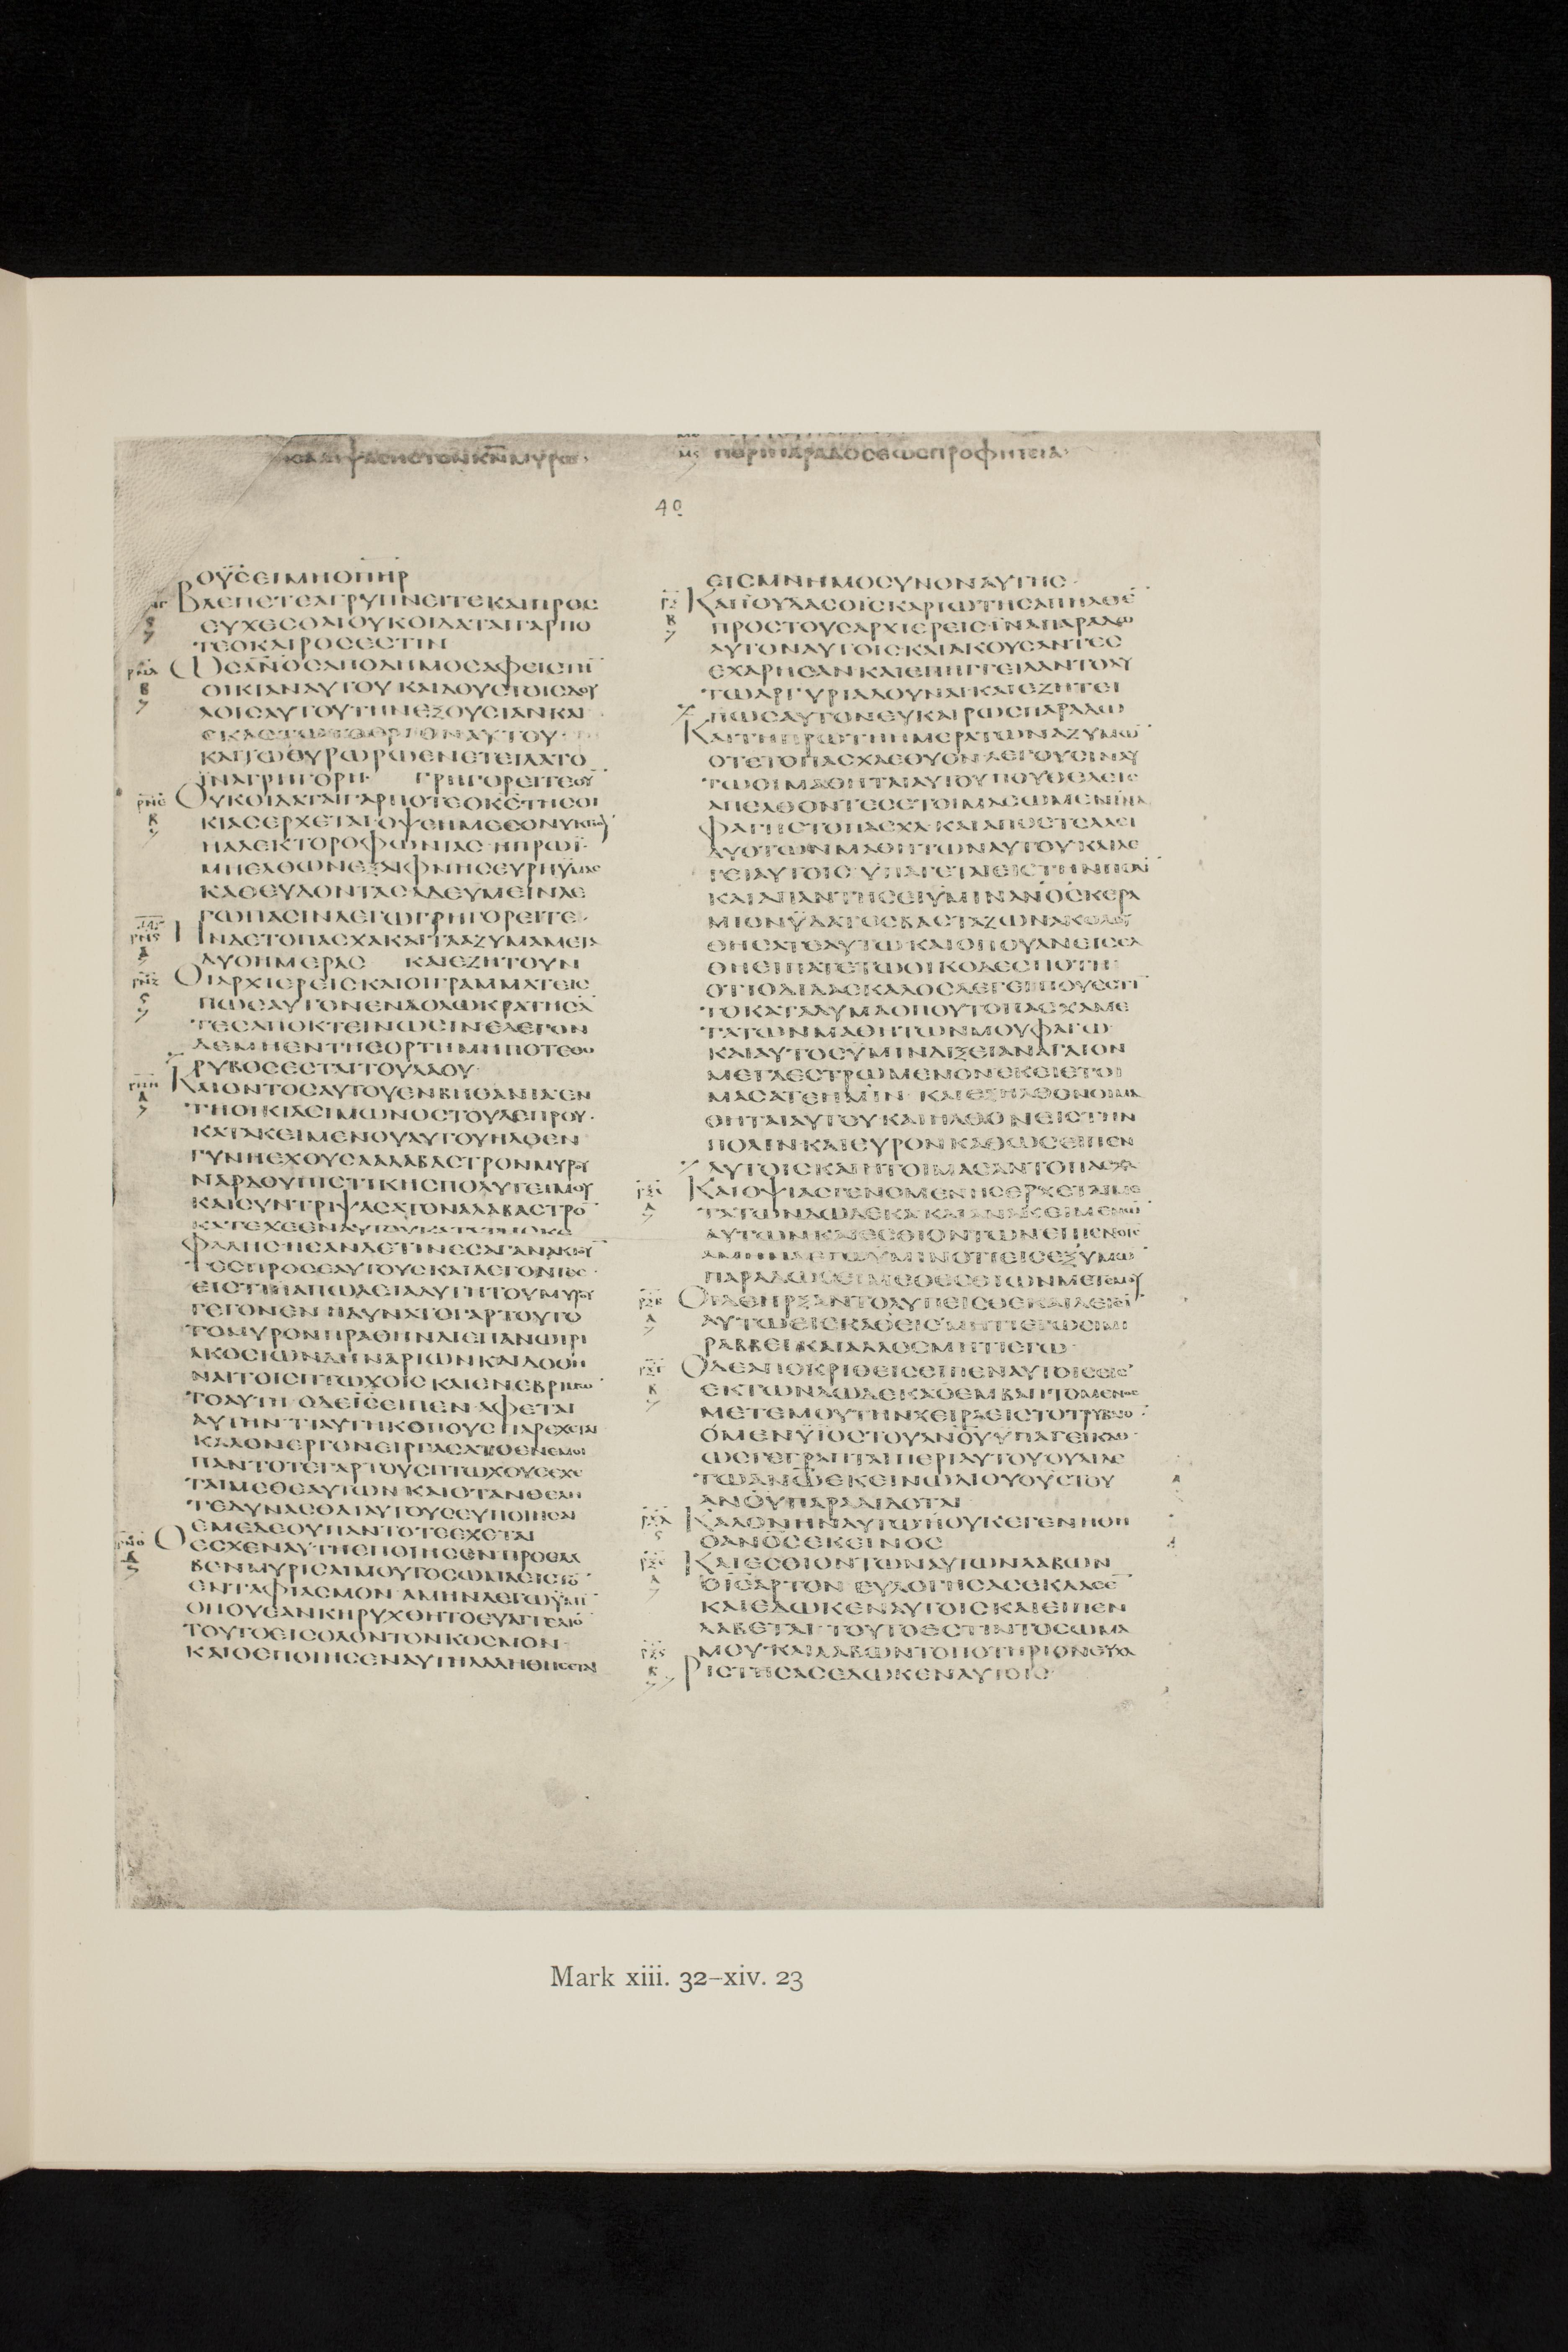 ΠΕΡΙΠΑΡΑΔΟϹΕΩϹΠΡΟΦΗΤΕΙΑ
40
ΟΥϹΕΙΜΗΟΠΗΡ
ΒΛΕΠΕΤΕΑΓΡΥΠΝΕΙΤΕΚΑΙΠΡΟϹ
ΕΥΧΕϹΘΑΙΟΥΚΟΙΔΑΤΑΙΓΑΡΠΟ
ΤΕΟΚΑΙΡΟϹΕϹΤΙΝ
ΩϹΑΝΟϹΑΠΟΔΗΜΟϹΑΦΕΙϹΤΗ
ΟΙΚΙΑΝΑΥΤΟΥΚΑΙΔΟΥϹΤΟΙϹΔΟΥ
ΛΟΙϹΑΥΤΟΥΤΗΝΕΞΟΥϹΙΑΝΚΑΙ
ΕΚΑϹΤΩΤΟΕΡΓΟΝΑΥΤΟΥ
ΚΑΙΤΩΘΥΡΩΡΩΕΝΕΤΕΙΛΑΤΟ
ΪΝΑΓΡΗΓΟΡΗ· ΓΡΗΓΟΡΕΙΤΕΟΥ
ΟΥΚΟΙΔΑΤΑΙΓΑΡΠΟΤΕΟΚϹΤΗϹΟΙ
ΚΙΑϹΕΡΧΕΤΑΙ·ΟΨΕΗΜΕϹΟΝΥΚΤΙΟΥ
ΗΑΛΕΚΤΟΡΟΦΩΝΙΑϹ·ΗΠΡΩΪ·
ΜΗΕΛΘΩΝΕΞΑΙΦΝΗϹΕΥΡΗΫΜΑϹ
ΚΑΘΕΥΔΟΝΤΑϹΑΔΕΥΜΕΙΝΛΕ
ΓΩΠΑϹΙΝΛΕΓΩΓΡΗΓΟΡΕΙΤΕ·
ΗΝΔΕΤΟΠΑϹΧΑΚΑΙΤΑΑΖΥΜΑΜΕΤΑ
ΔΥΟΗΜΕΡΑϹ ΚΑΙΕΖΗΤΟΥΝ
ΟΙΑΡΧΙΕΡΕΙϹΚΑΙΟΙΓΡΑΜΜΑΤΕΙϹ
ΠΩϹΑΥΤΟΝΕΝΔΟΛΩΚΡΑΤΗϹΑ
ΤΕϹΑΠΟΚΤΕΙΝΩϹΙΝΕΛΕΓΟΝ
ΔΕΜΗΕΝΤΗΕΟΡΤΗΜΗΠΟΤΕΘΟ
ΡΥΒΟϹΕϹΤΑΙΤΟΥΛΑΟΥ
ΚΑΙΟΝΤΟϹΑΥΤΟΥΕΝΒΗΘΑΝΙΑΕΝ
ΤΗΟΙΚΙΑϹΙΜΩΝΟϹΤΟΥΛΕΠΡΟΥ·
ΚΑΤΑΚΕΙΜΕΝΟΥΑΥΤΟΥΗΛΘΕΝ
ΓΥΝΗΕΧΟΥϹΑΑΛΑΒΑϹΤΡΟΝΜΥΡΟΥ
ΝΑΡΔΟΥΠΙϹΤΙΚΗϹΠΟΛΥΤΕΙΜΟΥ
ΚΑΙϹΥΝΤΡΙΨΑϹΑΤΟΝΑΛΑΒΑϹΤΡΟ
ΚΑΤΕΧΕΕΝΑΥΤΟΥΚΑΤΑΤΗϹΚΕ
ΦΑΛΗϹ·ΗϹΑΝΔΕΤΙΝΕϹΑΓΑΝΑΚΤΟΥ
ΤΕϹΠΡΟϹΕΑΥΤΟΥϹΚΑΙΛΕΓΟΝΤΕϹ·
ΕΙϹΤΙΗΑΠΩΛΕΙΑΑΥΤΗΤΟΥΜΥΡΟΥ
ΓΕΓΟΝΕΝΗΔΥΝΑΤΟΓΑΡΤΟΥΤΟ
ΤΟΜΥΡΟΝΠΡΑΘΗΝΑΙΕΠΑΝΩΤΡΙ
ΑΚΟϹΙΩΝΔΗΝΑΡΙΩΝΚΑΙΔΟΘΗ
ΝΑΙΤΟΙϹΠΤΩΧΟΙϹΚΑΙΕΝΕΒΡΙΜΩ
ΤΟΑΥΤΗ·ΟΔΕΙϹΕΙΠΕΝΑΦΕΤΑΙ
ΑΥΤΗΝ·ΤΙΑΥΤΗΚΟΠΟΥϹΠΑΡΕΧΕΤΑΙ
ΚΑΛΟΝΕΡΓΟΝΕΙΡΓΑϹΑΤΟΕΝΕΜΟΙ
ΠΑΝΤΟΤΕΓΑΡΤΟΥϹΠΤΩΧΟΥϹΕΧΕ
ΤΑΙΜΕΘΕΑΥΤΩΝΚΑΙΟΤΑΝΘΕΛΗ
ΤΕΔΥΝΑϹΘΑΙΑΥΤΟΥϹΕΥΠΟΙΗϹΑΙ
ΕΜΕΔΕΟΥΠΑΝΤΟΤΕΕΧΕΤΑΙ
ΟΕϹΧΕΝΑΥΤΗΕΠΟΙΗϹΕΝ·ΠΡΟΕΛΑ
ΒΕΝΜΥΡΙϹΑΙΜΟΥΤΟϹΩΜΑΕΙϹΤΟ
ΕΝΤΑΦΙΑϹΜΟΝ·ΑΜΗΝΛΕΓΩΫΜΙ
ΟΠΟΥΕΑΝΚΗΡΥΧΘΗΤΟΕΥΑΓΓΕΛΙΟ
ΤΟΥΤΟΕΙϹΟΛΟΝΤΟΝΚΟϹΜΟΝ·
ΚΑΙΟΕΠΟΙΗϹΕΝΑΥΤΗΛΑΛΗΘΗϹΕΤΑΙ
ΕΙϹΜΝΗΜΟϹΥΝΟΝΑΥΤΗϹ·
ΚΑΙΪΟΥΔΑϹΟΙϹΚΑΡΙΩΤΗϹΑΠΗΛΘΕ
ΠΡΟϹΤΟΥϹΑΡΧΙΕΡΕΙϹΪΝΑΠΑΡΑΔΩ
ΑΥΤΟΝΑΥΤΟΙϹΚΑΙΑΚΟΥϹΑΝΤΕϹ
ΕΧΑΡΗϹΑΝΚΑΙΕΠΗΓΓΕΙΛΑΝΤΟΑΥ
ΤΩΑΡΓΥΡΙΑΔΟΥΝΑΙ·ΚΑΙΕΖΗΤΕΙ
ΠΩϹΑΥΤΟΝΕΥΚΑΙΡΩϹΠΑΡΑΔΩ
ΚΑΙΤΗΠΡΩΤΗΗΜΕΡΑΤΩΝΑΖΥΜΩ
ΟΤΕΤΟΠΑϹΧΑΕΘΥΟΝΛΕΓΟΥϹΙΝΑΥ
ΤΩΟΙΜΑΘΗΤΑΙΑΥΤΟΥΠΟΥΘΕΛΕΙϹ
ΑΠΕΛΘΟΝΤΕϹΕΤΟΙΜΑϹΩΜΕΝΪΝΑ
ΦΑΓΗϹΤΟΠΑϹΧΑ·ΚΑΙΑΠΟϹΤΕΛΛΕΙ
ΔΥΟΤΩΝΜΑΘΗΤΩΝΑΥΤΟΥΚΑΙΛΕ
ΓΕΙΑΥΤΟΙϹ·ΥΠΑΓΕΤΑΙΕΙϹΤΗΝΠΟΛΙ
ΚΑΙΑΠΑΝΤΗϹΕΙΫΜΙΝΑΝΟϹΚΕΡΑ
ΜΙΟΝΫΔΑΤΟϹΒΑϹΤΑΖΩΝΑΚΟΛΟΥ
ΘΗϹΑΤΕΑΥΤΩΚΑΙΟΠΟΥΑΝΕΙϹΕΛ
ΘΗΕΙΠΑΤΕΤΩΟΙΚΟΔΕϹΠΟΤΗ
ΟΤΙΟΔΙΔΑϹΚΑΛΟϹΛΕΓΕΙΠΟΥΕϹΤΙ
ΤΟΚΑΤΑΛΥΜΑΟΠΟΥΤΟΠΑϹΧΑΜΕ
ΤΑΤΩΝΜΑΘΗΤΩΝΜΟΥΦΑΓΩ·
ΚΑΙΑΥΤΟϹΫΜΙΝΔΙΞΕΙΑΝΑΓΑΙΟΝ
ΜΕΓΑΕϹΤΡΩΜΕΝΟΝΕΚΕΙΕΤΟΙ
ΜΑϹΑΤΕΗΜΙΝ·ΚΑΙΕΞΗΛΘΟΝΟΙΜΑ
ΘΗΤΑΙΑΥΤΟΥΚΑΙΗΛΘΟΝΕΙϹΤΗΝ
ΠΟΛΙΝ·ΚΑΙΕΥΡΟΝΚΑΘΩϹΕΙΠΕΝ
ΑΥΤΟΙϹΚΑΙΗΤΟΙΜΑϹΑΝΤΟΠΑϹΧΑ
ΚΑΙΟΨΙΑϹΓΕΝΟΜΕΝΗϹΕΡΧΕΤΑΙΜΕ
ΤΑΤΩΝΔΩΔΕΚΑ·ΚΑΙΑΝΑΚΕΙΜΕΝΩ
ΑΥΤΩΝΚΑΙΕϹΘΙΟΝΤΩΝΕΙΠΕΝΟΙϹ
ΑΜΗΝΛΕΓΩΫΜΙΝΟΤΙΕΙϹΕΞΥΜΩ
ΠΑΡΑΔΩϹΕΙΜΕΟΕϹΘΙΩΝΜΕΤΕΜΟΥ
ΟΙΔΕΗΡΞΑΝΤΟΛΥΠΕΙϹΘΕΚΑΙΛΕΓΕΙ
ΑΥΤΩΕΙϹΚΑΘΕΙϹ·ΜΗΤΙΕΓΩΕΙΜΙ
ΡΑΒΒΕΙ·ΚΑΙΑΛΛΟϹΜΗΤΙΕΓΩ·
ΟΔΕΑΠΟΚΡΙΘΕΙϹΕΙΠΕΝΑΥΤΟΙϹΕΙϹ
ΕΚΤΩΝΔΩΔΕΚΑΟΕΜΒΑΠΤΟΜΕΝΟϹ
ΜΕΤΕΜΟΥΤΗΝΧΕΙΡΑΕΙϹΤΟΤΡΥΒΛΙΟ
ΟΜΕΝΫΙΟϹΤΟΥΑΝΟΥΥΠΑΓΕΙΚΑΘ
ΩϹΓΕΓΡΑΠΤΑΙΠΕΡΙΑΥΤΟΥΟΥΑΙΔΕ
ΤΩΑΝΩΕΚΕΙΝΩΔΙΟΥΟΥϹΤΟΥ
ΑΝΟΥΠΑΡΑΔΙΔΟΤΑΙ
ΚΑΛΟΝΗΝΑΥΤΩΗΟΥΚΕΓΕΝΗΘΗ
ΟΑΝΟϹΕΚΕΙΝΟϹ
ΚΑΙΕϹΘΙΟΝΤΩΝΑΥΤΩΝΛΑΒΩΝ
ΟΙϹΑΡΤΟΝ ΕΥΛΟΓΗϹΑϹΕΚΛΑϹΕ
ΚΑΙΕΔΩΚΕΝΑΥΤΟΙϹΚΑΙΕΙΠΕΝ
ΛΑΒΕΤΑΙ·ΤΟΥΤΟΕϹΤΙΝΤΟϹΩΜΑ
ΜΟΥ·ΚΑΙΛΑΒΩΝΤΟΠΟΤΗΡΙΟΝΕΥΧΑ
ΡΙϹΤΗϹΑϹΕΔΩΚΕΝΑΥΤΟΙϹ·
Mark xiii. 32–xiv. 23